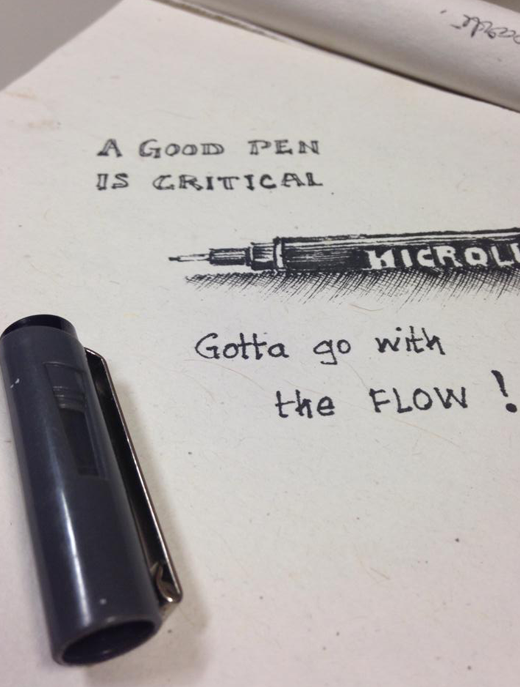 A GOOD PEN
IS CRITICAL
Gotta go with
the FLOW !